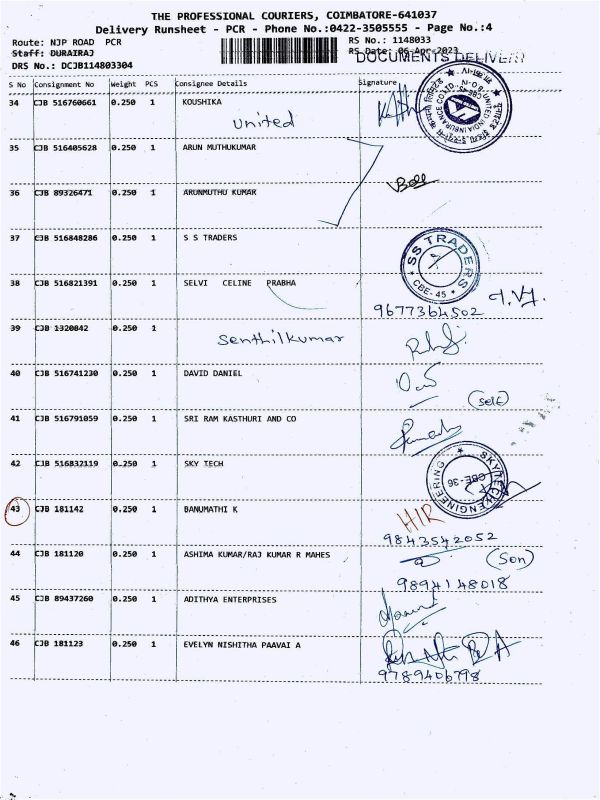 THE PROFESSIONAL COURIERS, COIMBATORE-641037
Delivery Runsheet - PCR - Phone No.:0422-3505555 - Page No.:4
Route: NJP ROAD PCR
RS No.: 1148033
Staff: DURAIRAJ
RS Date: 06-Apr-2023
DRS No.: DCJB114803304
DOCUMENTS DELIVERY
S No Consignment No Weight PCS Consignee Details Signature
34 CJB 516760661 0.250 1 KOUSHIKA
United
35 CJB 516405628 0.250 1 ARUN MUTHUKUMAR
36 CJB 89326471 0.250 1 ARUNMUTHU KUMAR
37 CJB 516848286 0.250 1 S S TRADERS
SS TRADERS
CBE-45
38 CJB 516821391 0.250 1 SELVI CELINE PRABHA
9677364502
39 CJB 1320842 0.250 1
Senthilkumar
40 CJB 516741230 0.250 1 DAVID DANIEL
(self)
41 CJB 516791059 0.250 1 SRI RAM KASTHURI AND CO
42 CJB 516832119 0.250 1 SKY TECH
SKYTECH ENGINEERING
CBE-36
43 CJB 181142 0.250 1 BANUMATHI K
HIR
9843542052
44 CJB 181120 0.250 1 ASHIMA KUMAR/RAJ KUMAR R MAHES
(Son)
9894148018
45 CJB 89437260 0.250 1 ADITHYA ENTERPRISES
46 CJB 181123 0.250 1 EVELYN NISHITHA PAAVAI A
9789406798